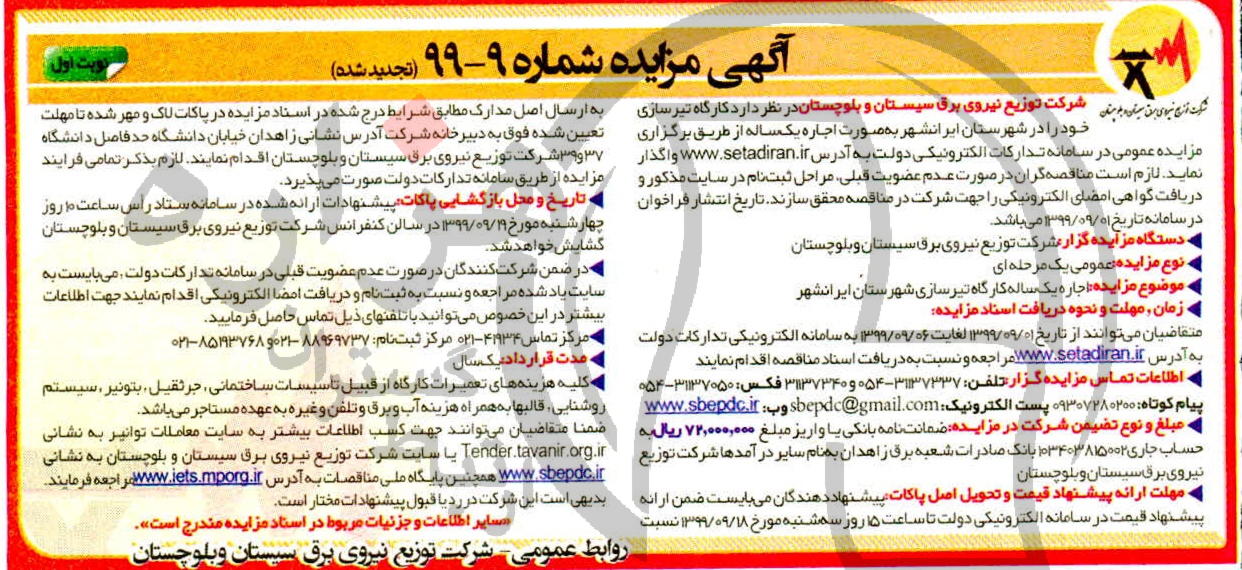 آگهی مزایده شماره ۹-۹۹ (تجدید شده)
نوبت اول
شرکت توزیع نیروی برق سیستان و بلوچستان
شرکت توزیع نیروی برق سیستان و بلوچستان در نظر دارد کارگاه تیرسازی
خود را در شهرستان ایرانشهر به‌صورت اجاره یکساله از طریق برگزاری
مزایده عمومی در سامانه تدارکات الکترونیکی دولت به آدرس www.setadiran.ir واگذار
نماید. لازم است مناقصه‌گران در صورت عدم عضویت قبلی، مراحل ثبت‌نام در سایت مذکور و
دریافت گواهی امضای الکترونیکی را جهت شرکت در مناقصه محقق سازند. تاریخ انتشار فراخوان
در سامانه تاریخ ۱۳۹۹/۰۹/۰۱ می‌باشد.
دستگاه مزایده گزار: شرکت توزیع نیروی برق سیستان و بلوچستان
نوع مزایده: عمومی یک مرحله ای
موضوع مزایده: اجاره یک ساله کارگاه تیرسازی شهرستان ایرانشهر
زمان، مهلت و نحوه دریافت اسناد مزایده:
متقاضیان می‌توانند از تاریخ ۱۳۹۹/۰۹/۰۱ لغایت ۱۳۹۹/۰۹/۰۶ به سامانه الکترونیکی تدارکات دولت
به آدرس www.setadiran.ir مراجعه و نسبت به دریافت اسناد مناقصه اقدام نمایند
اطلاعات تماس مزایده گزار: تلفن: ۳۱۱۳۷۳۳۷-۰۵۴ و ۳۱۱۳۷۳۴۰ فکس: ۳۱۱۳۷۰۵۰-۰۵۴
پیام کوتاه: ۰۹۳۰۷۲۸۰۲۰۰ پست الکترونیک: sbepdc@gmail.com وب: www.sbepdc.ir
مبلغ و نوع تضمین شرکت در مزایده: ضمانت‌نامه بانکی یا واریز مبلغ ۷۲,۰۰۰,۰۰۰ ریال به
حساب جاری ۰۱۰۳۴۰۳۸۱۵۰۰۲ بانک صادرات شعبه برق زاهدان به‌نام سایر درآمدها شرکت توزیع
نیروی برق سیستان و بلوچستان
مهلت ارائه پیشنهاد قیمت و تحویل اصل پاکات: پیشنهاددهندگان می‌بایست ضمن ارائه
پیشنهاد قیمت در سامانه الکترونیکی دولت تا ساعت ۱۵ روز سه‌شنبه مورخ ۱۳۹۹/۰۹/۱۸ نسبت
به ارسال اصل مدارک مطابق شرایط درج شده در اسناد مزایده در پاکات لاک و مهر شده تا مهلت
تعیین شده فوق به دبیرخانه شرکت آدرس نشانی زاهدان خیابان دانشگاه حدفاصل دانشگاه
۳۷ و ۳۹ شرکت توزیع نیروی برق سیستان و بلوچستان اقدام نمایند. لازم بذکر تمامی فرایند
مزایده از طریق سامانه تدارکات دولت صورت می‌پذیرد.
تاریخ و محل بازگشایی پاکات: پیشنهادات ارائه شده در سامانه ستاد رأس ساعت ۱۰ روز
چهارشنبه مورخ ۱۳۹۹/۰۹/۱۹ در سالن کنفرانس شرکت توزیع نیروی برق سیستان و بلوچستان
گشایش خواهد شد.
در ضمن شرکت‌کنندگان در صورت عدم عضویت قبلی در سامانه تدارکات دولت، می‌بایست به
سایت یاد شده مراجعه و نسبت به ثبت‌نام و دریافت امضا الکترونیکی اقدام نمایند جهت اطلاعات
بیشتر در این خصوص می‌توانید با تلفنهای ذیل تماس حاصل فرمایید.
مرکز تماس ۴۱۹۳۴-۰۲۱ مرکز ثبت‌نام: ۸۸۹۶۹۷۳۷-۰۲۱ و ۸۵۱۹۳۷۶۸-۰۲۱
مدت قرارداد: یکسال
کلیه هزینه‌های تعمیرات کارگاه از قبیل تأسیسات ساختمانی، جرثقیل، بتونیر، سیستم
روشنایی، قالبها به‌همراه هزینه آب و برق و تلفن و غیره به عهده مستاجر می‌باشد.
ضمنا متقاضیان می‌توانند جهت کسب اطلاعات بیشتر به سایت معاملات توانیر به نشانی
Tender.tavanir.org.ir یا سایت شرکت توزیع نیروی برق سیستان و بلوچستان به نشانی
www.sbepdc.ir همچنین پایگاه ملی مناقصات به آدرس www.iets.mporg.ir مراجعه فرمایند.
بدیهی است این شرکت در رد یا قبول پیشنهادات مختار است.
«سایر اطلاعات و جزئیات مربوط در اسناد مزایده مندرج است».
روابط عمومی - شرکت توزیع نیروی برق سیستان و بلوچستان